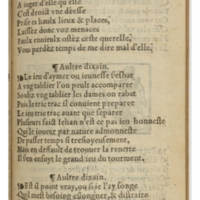 A iuger d'elle qu'elle est
C'est droict vne déesse
Prise es haulx lieux & places,
Laissez donc voz menaces
Faulx enuieux ostez ceste querelle,
Vous perdez temps de me dire mal d'elle,
¶ Aultre dixain.
Le ieu d'aymer ou ieunesse s'esbat
A vng tablier l'on peult accomparer
Soubz vng tablier les dames on rabat
Puis le tric trac il conuient preparer
Le tric trac auant que separer
Plusieurs font Iehan n'est ce pas ieu honneste
Qui le iouer par nature admonneste
De passer temps si tresioyeusement,
Mais en deffault de trouuer la renette
Il s'en ensuyt le grand ieu du tourment,
¶ Aultre dixain.
Est il point vray, ou si ie l'ay songe
Qu'il mest besoing esloigner, & distraire